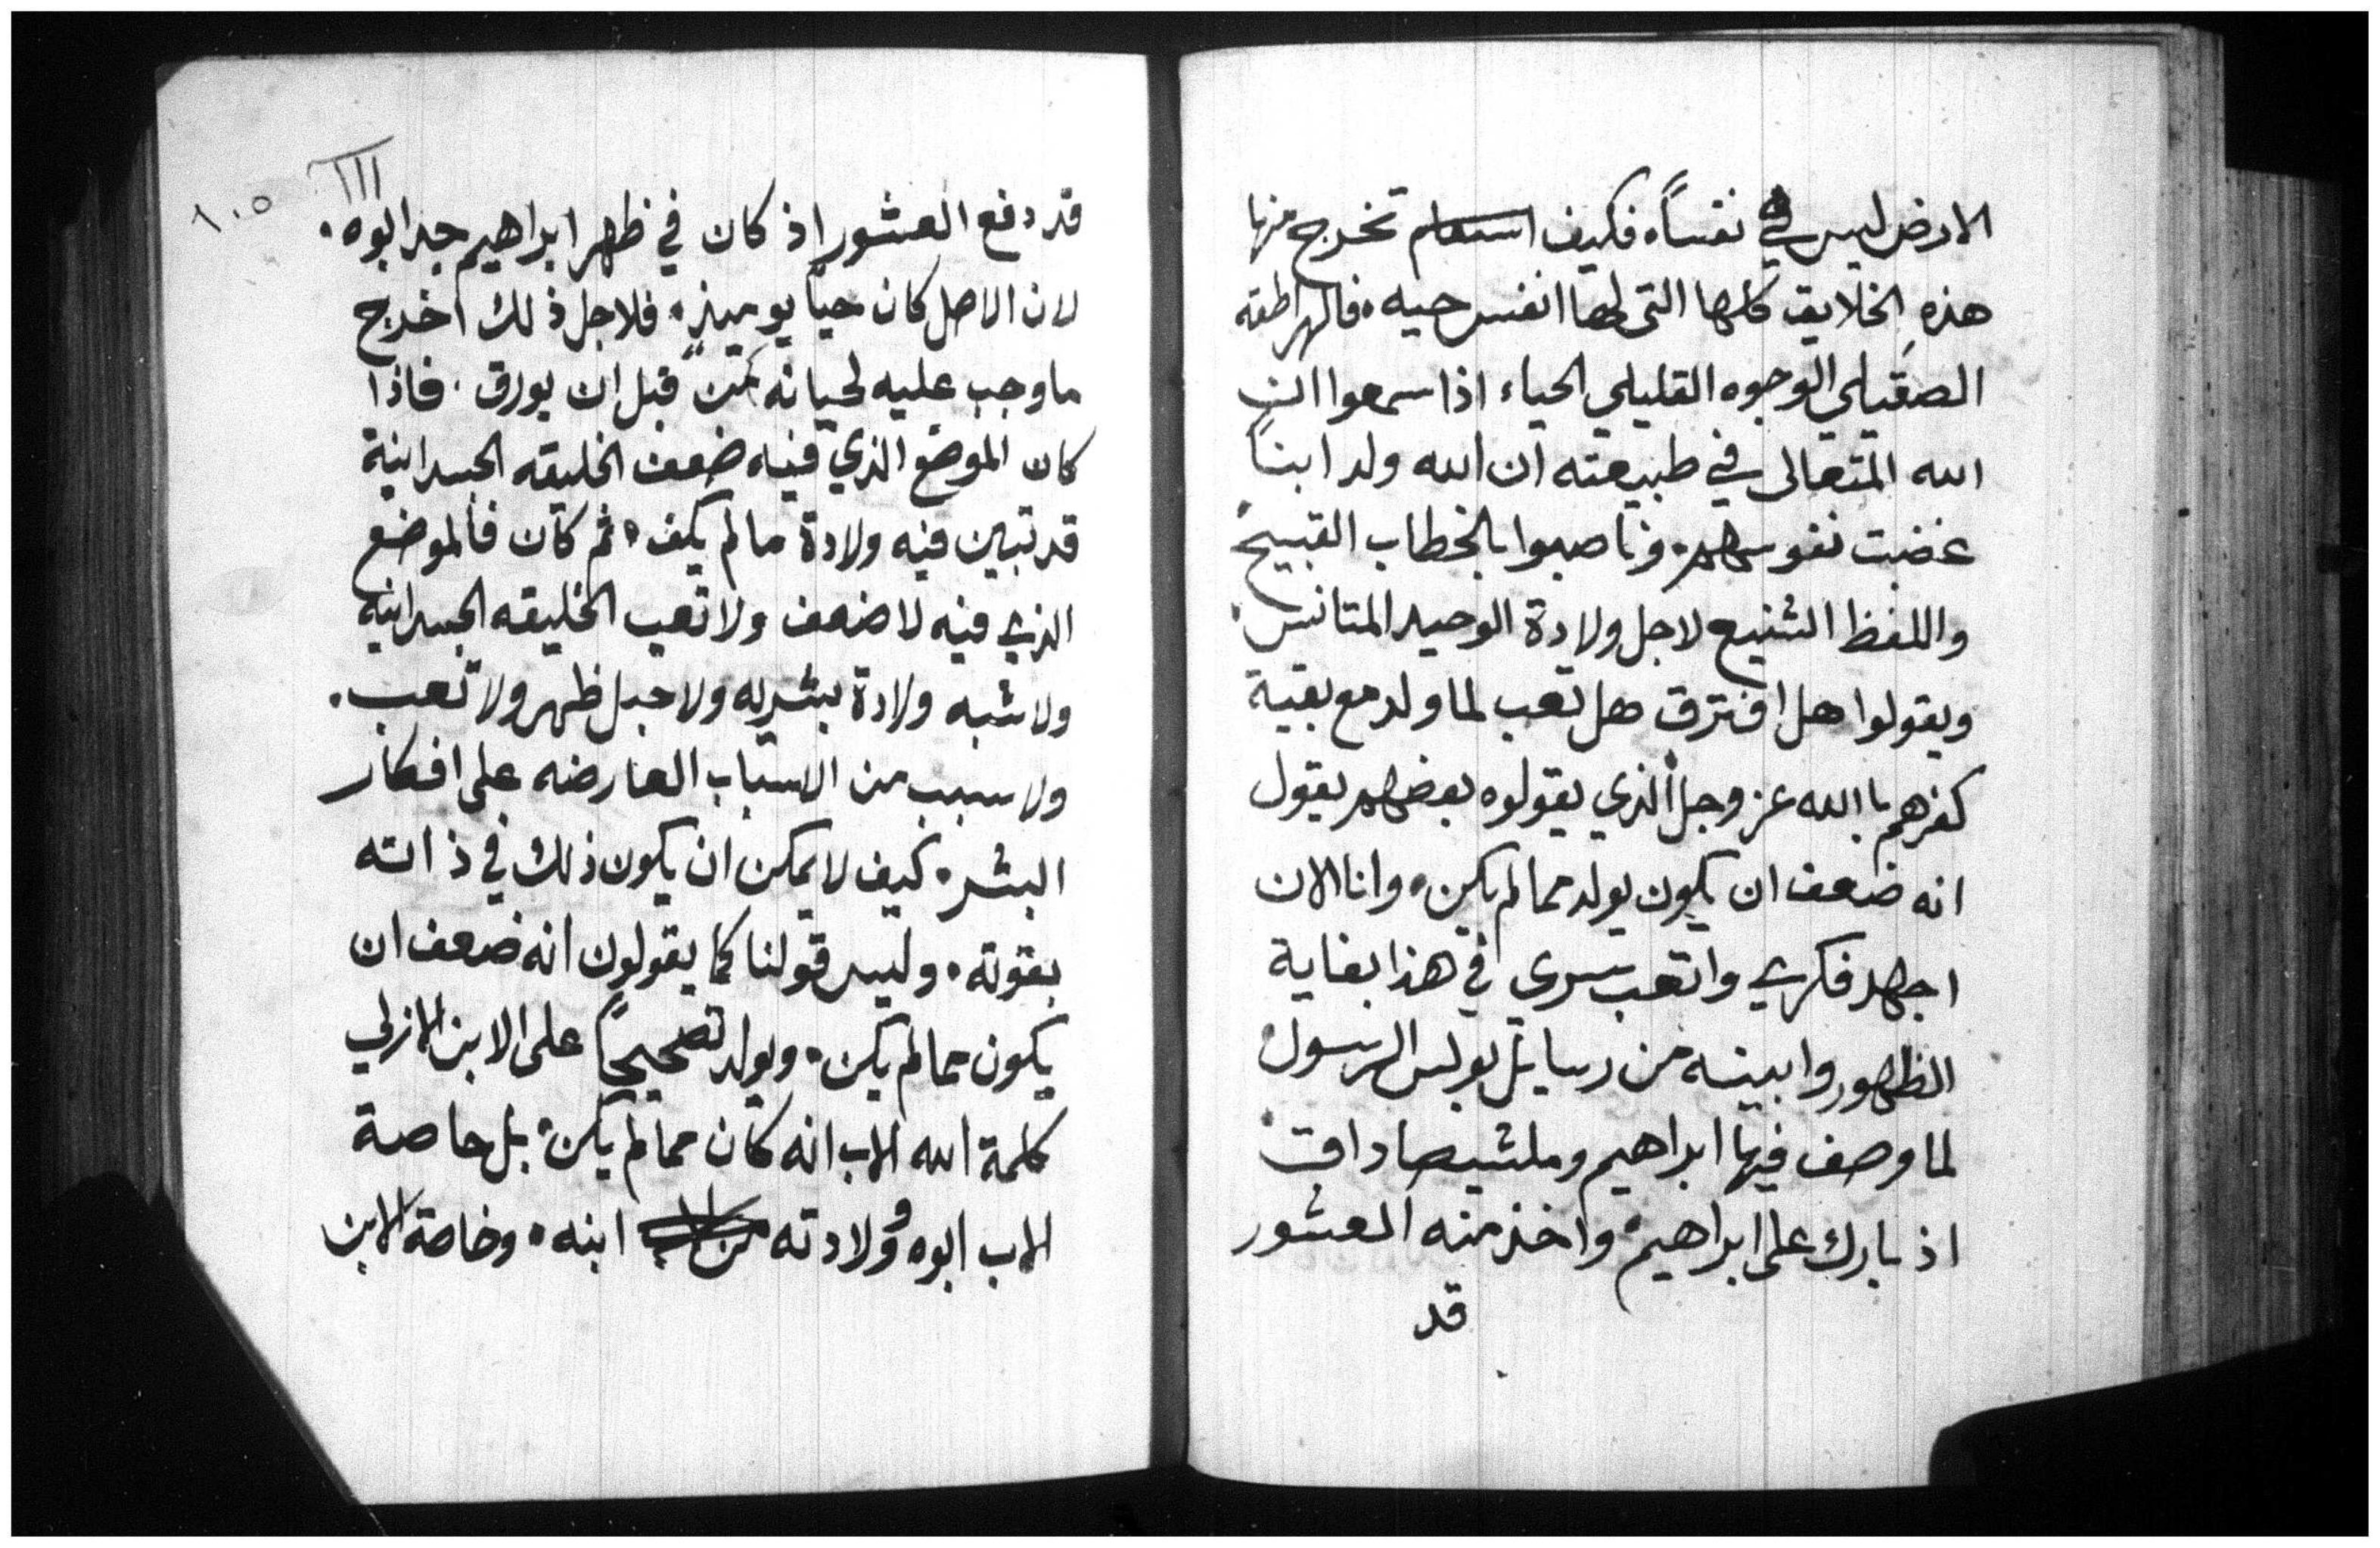 الارض ليس في نفساً. فكيف تخرج منها
هذه الخلايق كلها التي لها انفس حيه. فالهراطقه
الصقيلي الوجوه القليلي الحياء اذا سمعوا ان
الله المتعالى في طبيعته ان الله ولد ابناً
غضبت نفوسهم. وناصبوا بالخطاب القبيح
واللفظ الشنيع لاجل ولادة الوحيد المتانس.
ويقولوا هل افترق هل تعب لما ولد مع بقية
كفرهم بالله عز وجل الذي يقولوه بعضهم يقول
انه ضعف ان يكون يولد مما لم يكن. وانا الان
اجهد فكري واتعب سري في هذا بغاية
الظهور وابينه من رسايل بولس الرسول
لما وصف فيها ابراهيم وملشيصاداق
اذ بارك على ابراهيم. واخذ منه العشور
قد
١٠٥
قد دفع العشور اذ كان في ظهر ابراهيم جد ابوه.
لان الاصل كان حياً يوميذٍ. فلاجل ذلك اخرج
ما وجب عليه قبل ان يورق. فاذا
كان الموضع الذي فيه ضعف الخليقه الجسدانية
قد تبين فيه ولادة ما لم يكف. ثم كان فالموضع
الذي فيه لا ضعف ولا تعب الخليقه الجسدانيه
ولا شبه ولادة بشريه ولا حبل ظهر ولا تعب.
ولا سبب من الاسباب العارضه على افكار
البشر. كيف لا يمكن ان يكون ذلك في ذاته
بقوته. وليس قولنا كما يقولون انه ضعف ان
يكون مما لم يكن. ويولد تصحيحاً على الابن الازلي
كلمة الله الاب انه كان مما لم يكن. بل خاصة
الاب ابوه وولادته ابنه. وخاصة الابن